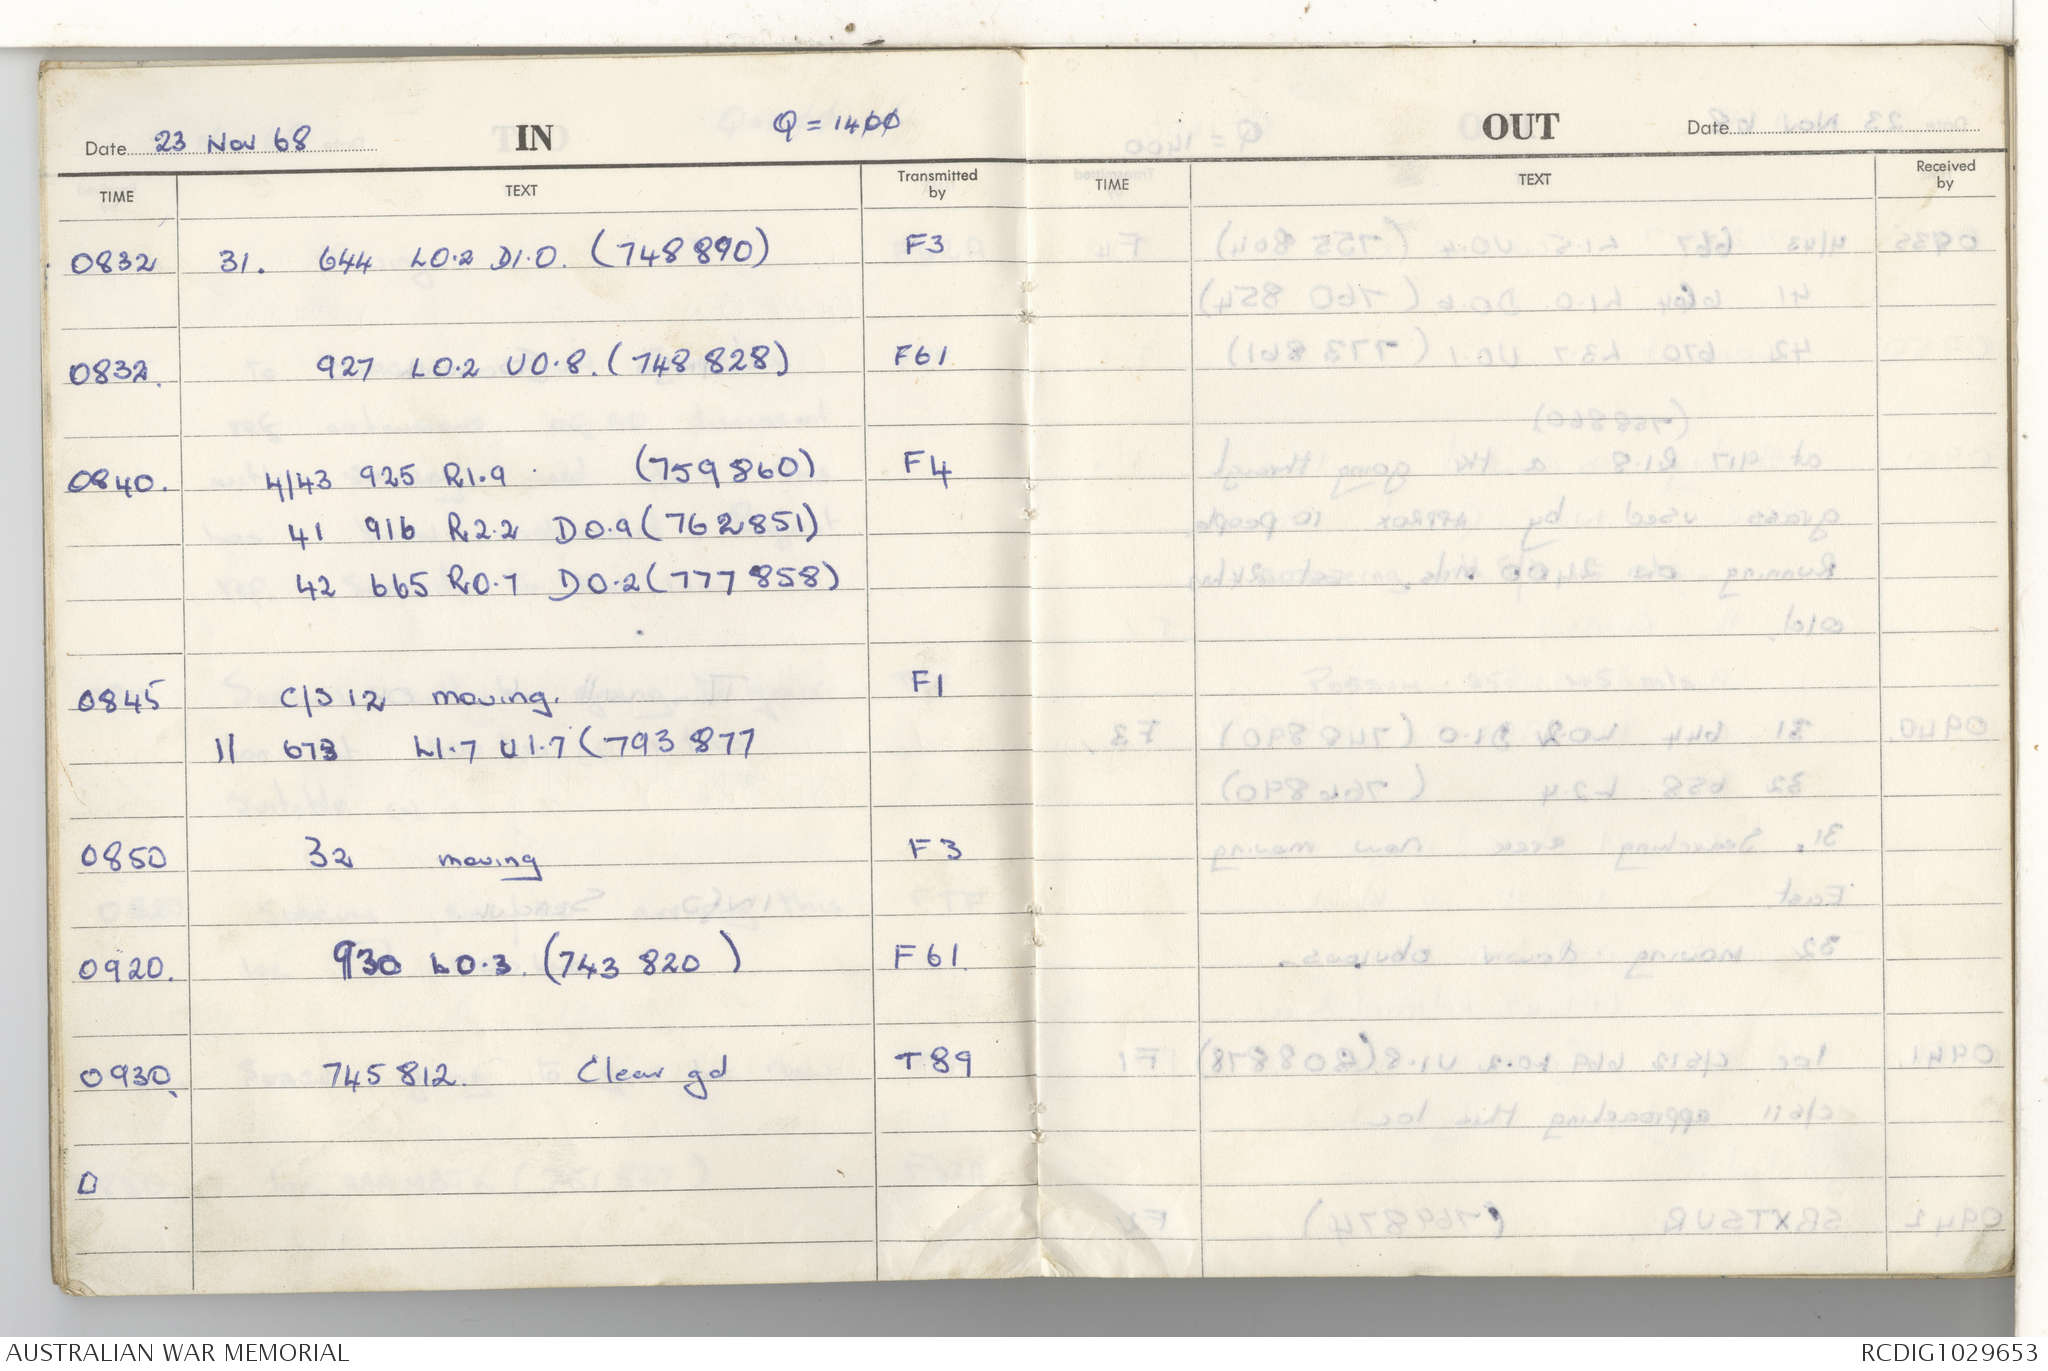 Date 23 Nov 68 IN Q = 1400
TIME TEXT Transmitted by
0832 31. 644 L0.2 D1.0. (748890) F3
0832. 927 L0.2 U0.8. (748828) F61
0840. 4/43 925 R1.9 (759860) F4
41 916 R2.2 D0.9 (762851)
42 665 R0.7 D0.2 (777858)
0845 C/S 12 moving. F1
11 673 L1.7 U1.7 (793877
0850 32 moving F3
0920. 930 L0.3. (743820) F61
0930. 745812. Clear gd T89
D
OUT Date
TIME TEXT Received by
AUSTRALIAN WAR MEMORIAL
RCDIG1029653